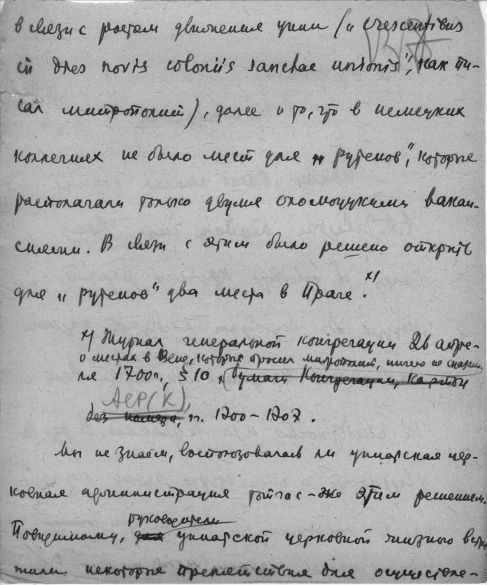 в связи с ростом движения унии („crescentibus
in dies novis coloniis sanctae unionis", как пи-
сал митрополит), далее и то, что в немецких
коллегиях не было мест для „рутенов", которые
располагали только двумя оломоуцкими вакан-
сиями. В связи с этим было решено открыть
для „рутенов" два места в Праге.x)
x) Журнал генеральной конгрегации 26 апре-
о местах в Вене, которые просил митрополит, ничего не сказано.
ля 1700 г., § 10, (бумаги Конгрегации, картон
АСР(К),
без номера, гг. 1700-1707.
Мы не знаем, воспользовалась ли униатская цер-
ковная администрация тотчас-же этим решением.
руководители
Повидимому, для униатской церковной жизни встре-
тили некоторые препятствия для осуществле-